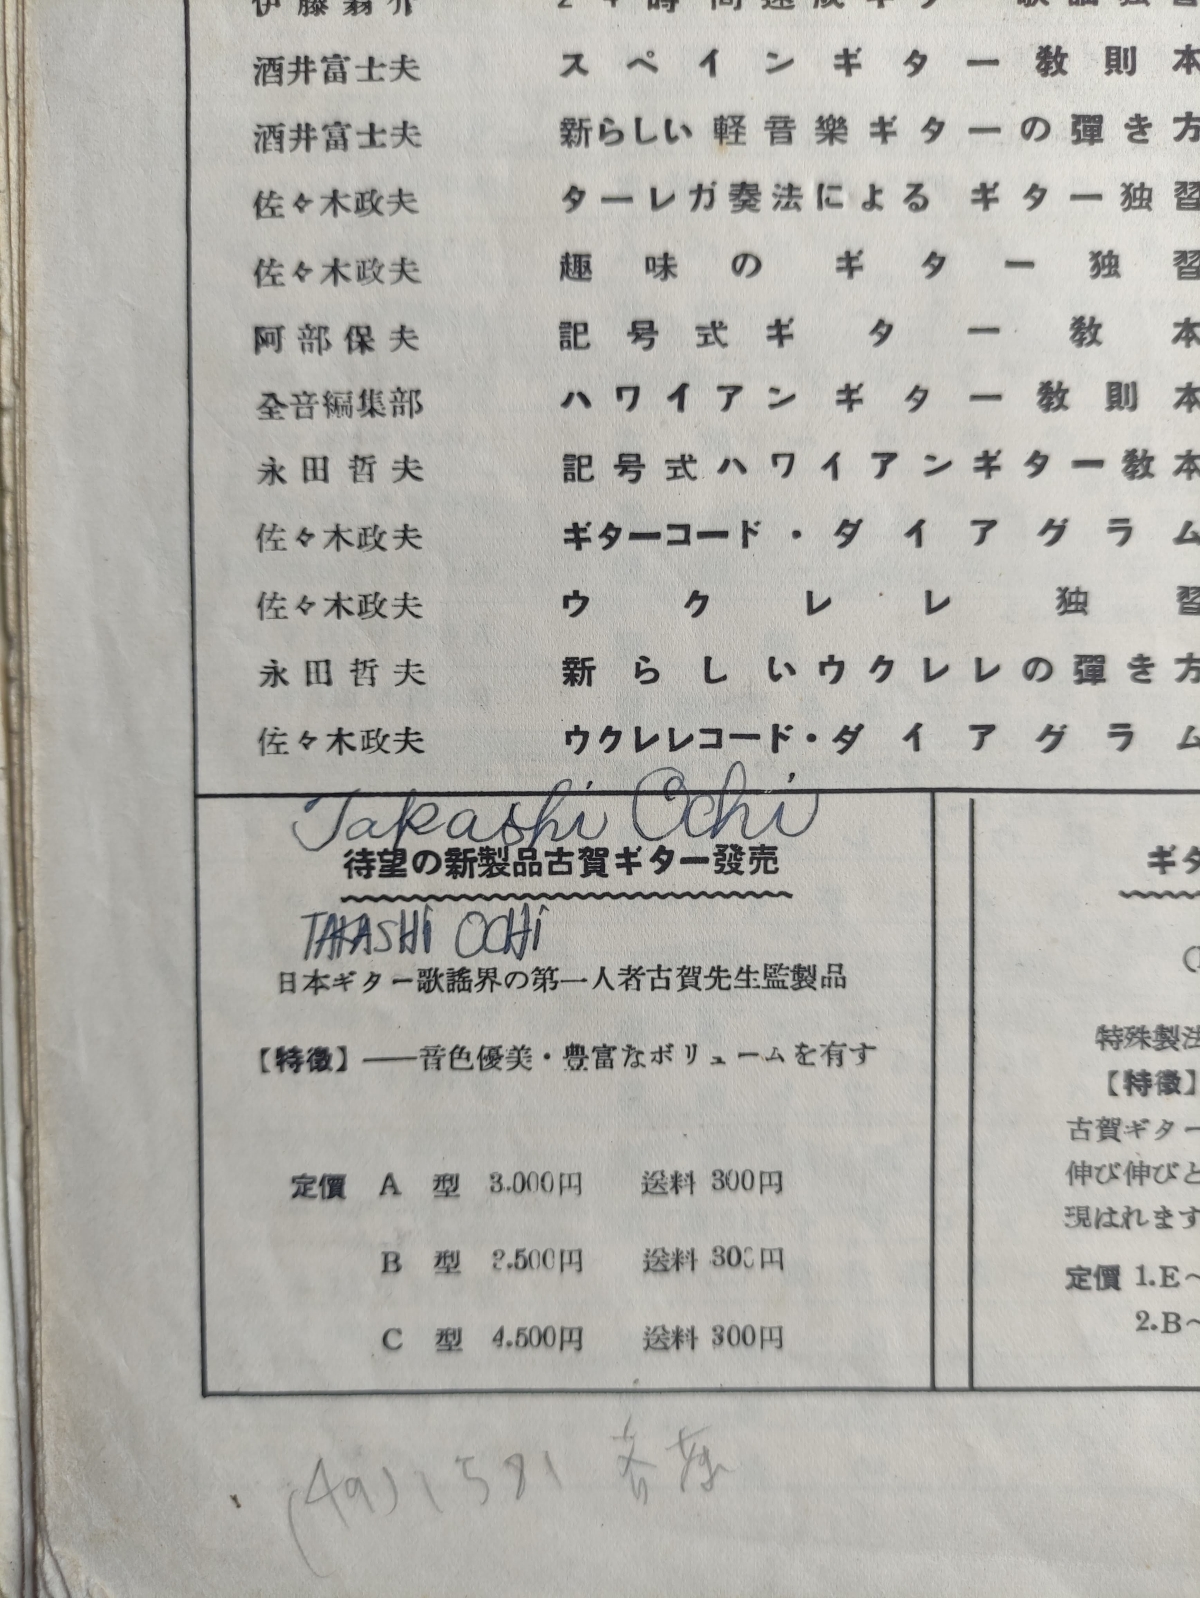 酒井富士夫 スペインギター教則本
酒井富士夫 新らしい軽音樂ギターの彈き方
佐々木政夫 ターレガ奏法によるギター独習
佐々木政夫 趣味のギター独習
阿部保夫 記号式ギター教本
全音編集部 ハワイアンギター教則本
永田哲夫 記号式ハワイアンギター教本
佐々木政夫 ギターコード・ダイアグラム
佐々木政夫 ウクレレ独習
永田哲夫 新らしいウクレレの彈き方
佐々木政夫 ウクレレコード・ダイアグラム
Takashi Ochi
待望の新製品古賀ギター發売
TAKASHI OCHI
日本ギター歌謡界の第一人者古賀先生監製品
【特徴】――音色優美・豊富なボリュームを有す
定價 A 型 3.000円 送料 300円
B 型 2.500円 送料 300円
C 型 4.500円 送料 300円
ギタ
特殊製法
【特徴】
古賀ギター
伸び伸びと
現はれます
定價 1.E~
2.B~
(49) 1581